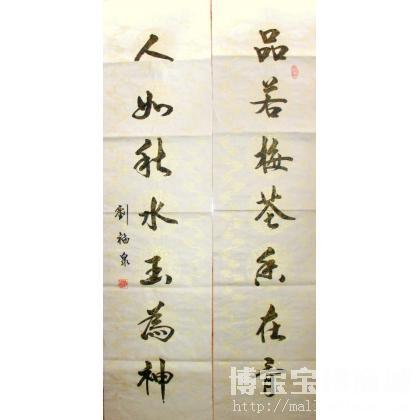 品若梅花香在骨
人如秋水玉為神
劉福泉
博宝
http://mall